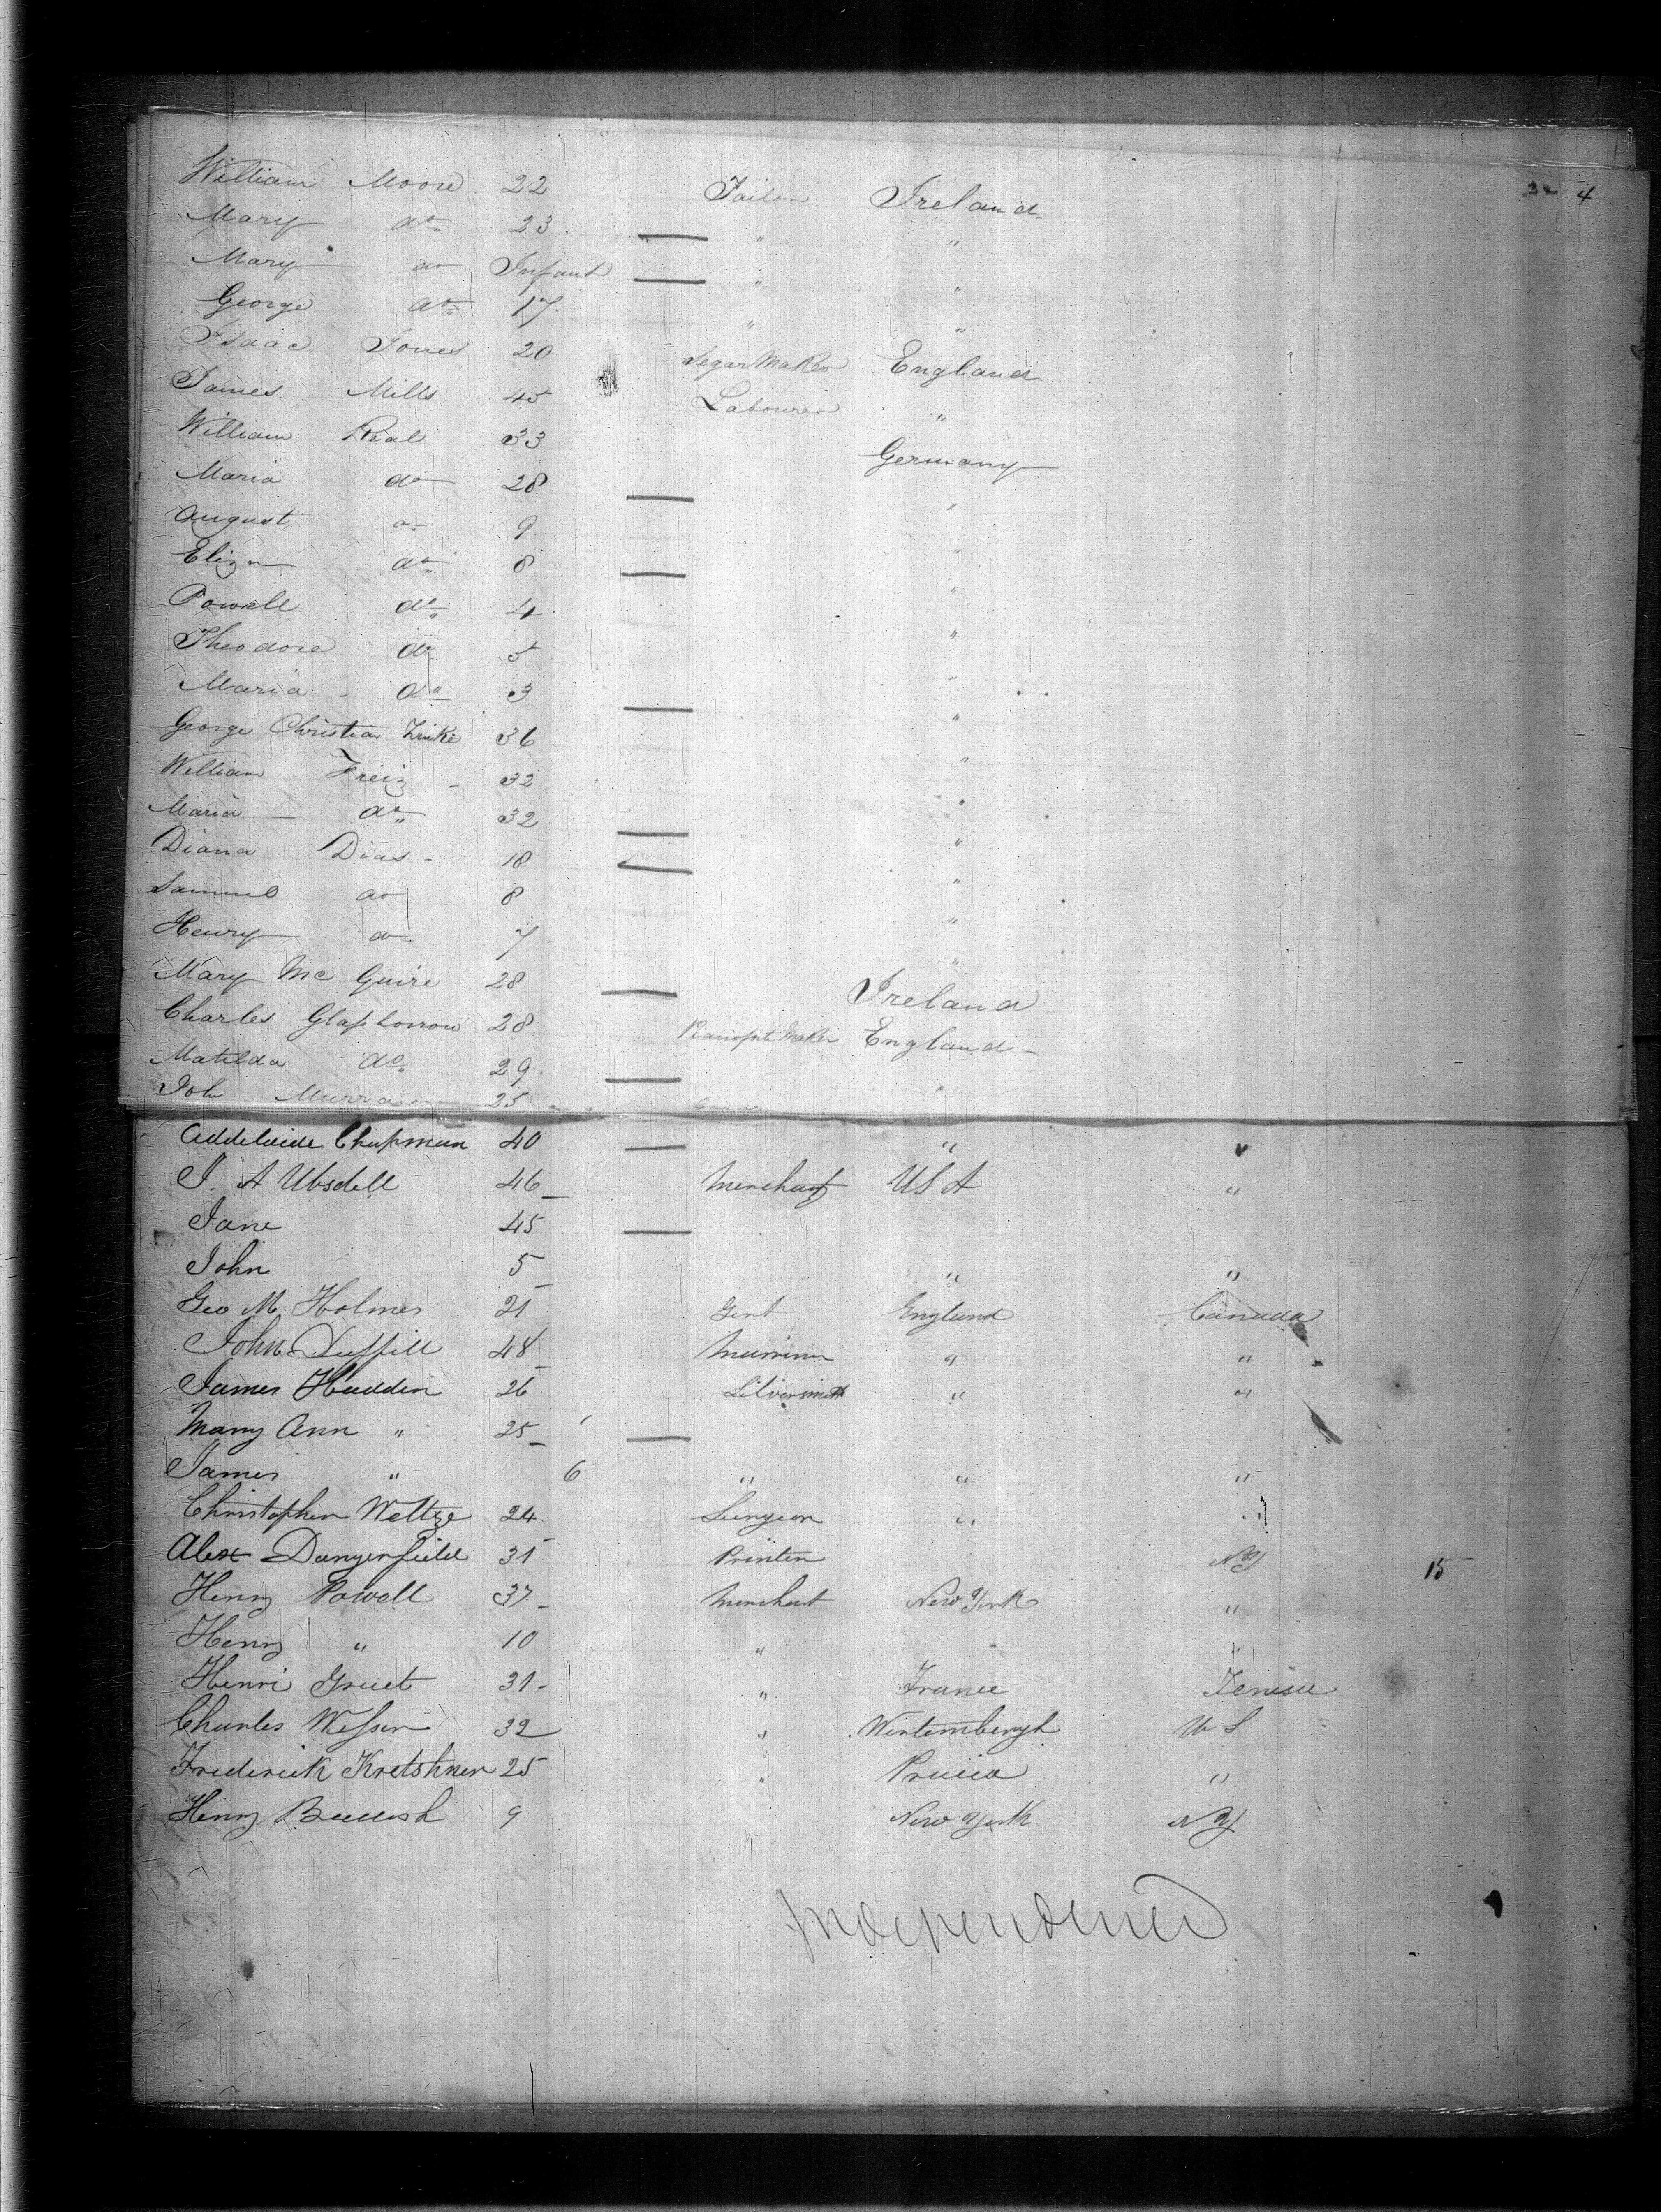 3 4
William Moore 22 Tailor Ireland
Mary do 23 — " "
Mary do Infant — " "
George do 17 " "
Isaac Jones 20 Segar Maker England
James Mills 45 Labourer "
William Real 33 Germany
Maria do 28 — "
August do 9 "
Eliza do 8 — "
Powell do 4 "
Theodore do 5 "
Maria do 3 — "
George Christian 36 "
William 32 "
Maria do 32 — "
Diana Dias 18 — "
Samuel do 8 "
Henry do 7 "
Mary Mc Guire 28 — Ireland
Charles 28 Pianoforte Maker England
Matilda do 29 — "
John Murra 25
Addelaide Chapman 40 — " "
J. A Ubsdell 46 Merchant USA "
Jane 45 —
John 5 " "
Geo M. Holmes 21 Gent England Canada
John Duffill 48 " "
James Haddin 26 Silversmith " "
Mary Ann " 25 —
James " 6 " " "
Christopher Weltze 24 Surgeon " "
Alex Dangerfield 31 Printer NY 15
Henry Powell 37 Merchant New York "
Henry " 10 " "
Henri Gruet 31 " France
Charles 32 " Wirtembergh U S
Frederick Kretshner 25 " Prucia "
Henry 9 New York NY
Independence